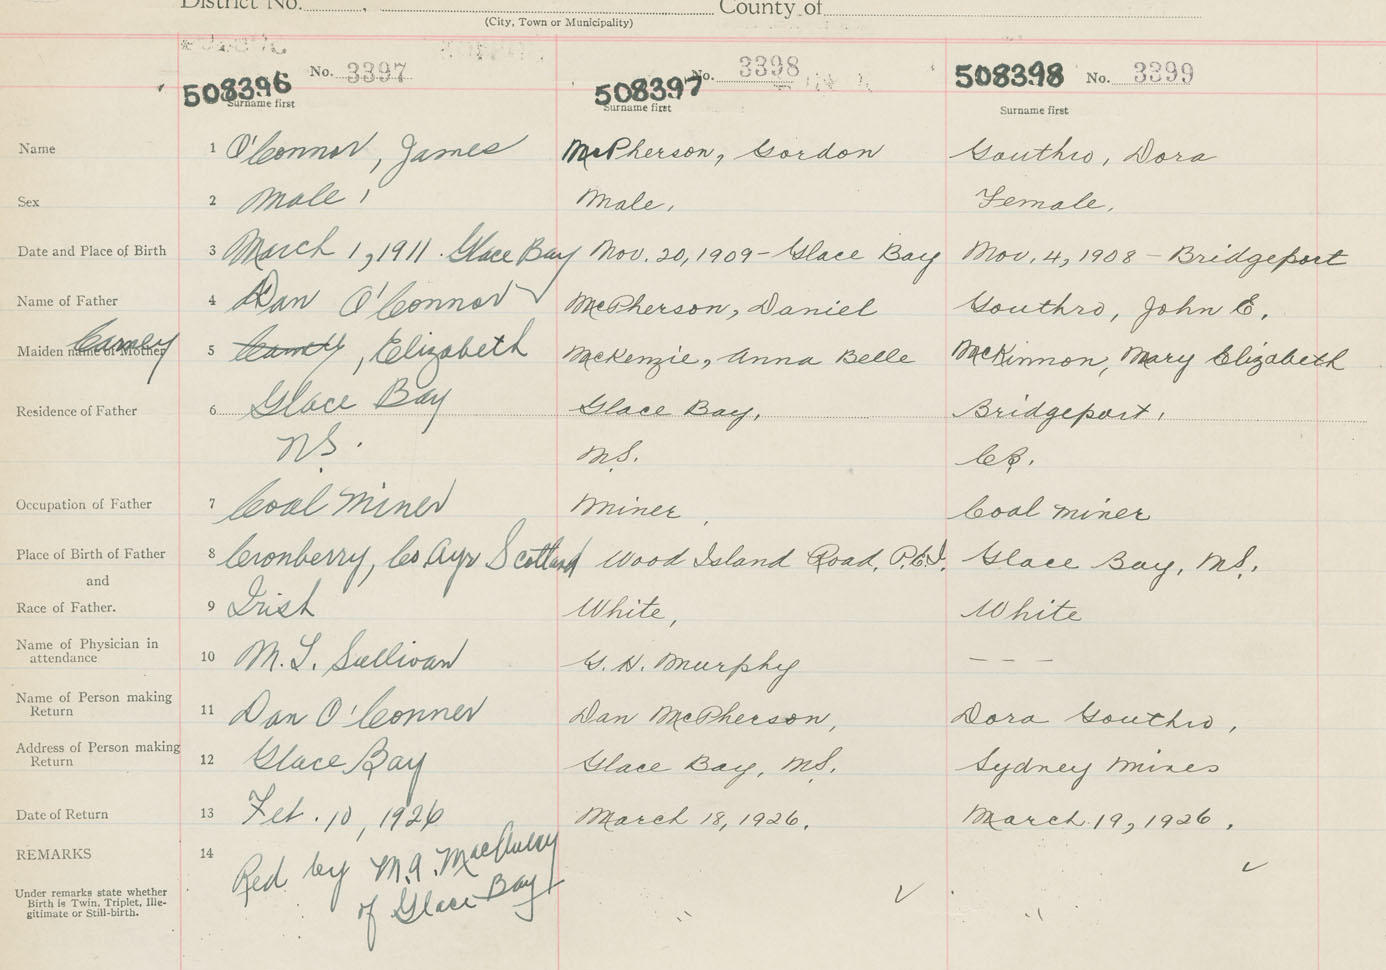 District No. , County of
(City, Town or Municipality)
508396 No. 3397 508397 No. 3398 508398 No. 3399
Surname first Surname first Surname first
Name 1 O'Connor, James McPherson, Gordon Gouthro, Dora
Sex 2 Male Male, Female,
Date and Place of Birth 3 March 1, 1911. Glace Bay Nov. 20, 1909 - Glace Bay Nov. 4, 1908 - Bridgeport
Name of Father 4 Dan O'Connor McPherson, Daniel Gouthro, John E.
Carney
Maiden name of Mother 5 , Elizabeth McKenzie, Anna Belle McKinnon, Mary Elizabeth
Residence of Father 6 Glace Bay Glace Bay, Bridgeport,
N.S. N.S. C.B.
Occupation of Father 7 Coal Miner Miner, Coal miner
Place of Birth of Father 8 Cronberry, Co Ayr Scotland Wood Island Road, P.E.I. Glace Bay, N.S.
and
Race of Father. 9 Irish White, White
Name of Physician in
attendance 10 M. T. Sullivan G. H. Murphy - - -
Name of Person making
Return 11 Dan O'Conner Dan McPherson, Dora Gouthro,
Address of Person making
Return 12 Glace Bay Glace Bay, N.S. Sydney Mines
Date of Return 13 Feb. 10, 1926 March 18, 1926. March 19, 1926.
REMARKS 14 Red by M.A.
of Glace Bay
Under remarks state whether
Birth is Twin, Triplet, Ille-
gitimate or Still-birth.